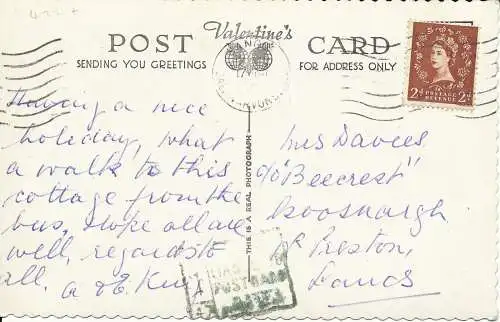 Valentine's
POST CARD
SENDING YOU GREETINGS
FOR ADDRESS ONLY
Having a nice
holiday, what
a walk to this
cottage from the
bus, hope all are
well, regards to
all. a & E King
THIS IS A REAL PHOTOGRAPH
Mrs Davies
c/o "Beecrest"
Goosnargh
Nr Preston,
Lancs
2d POSTAGE REVENUE 2d